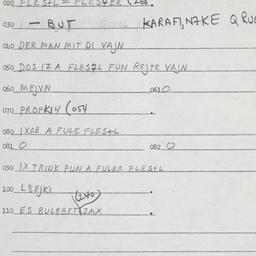 020 FLESHL = FLESHER (268.
030 — BUT KARAFI, NAKE Q RUS
040 DER MAN MIT DI VAJN
050 DOS IZ A FLESZL FUN REJTE VAJN
060 MEJVN 061 0
070 PROPKI4 (054
080 IXOB A FULE FLESHL
081 0 082 0
090 IX TRINK FUN A FULER FLESHL
100 LBEJKI (240)
110 ES BULEBET ZAX